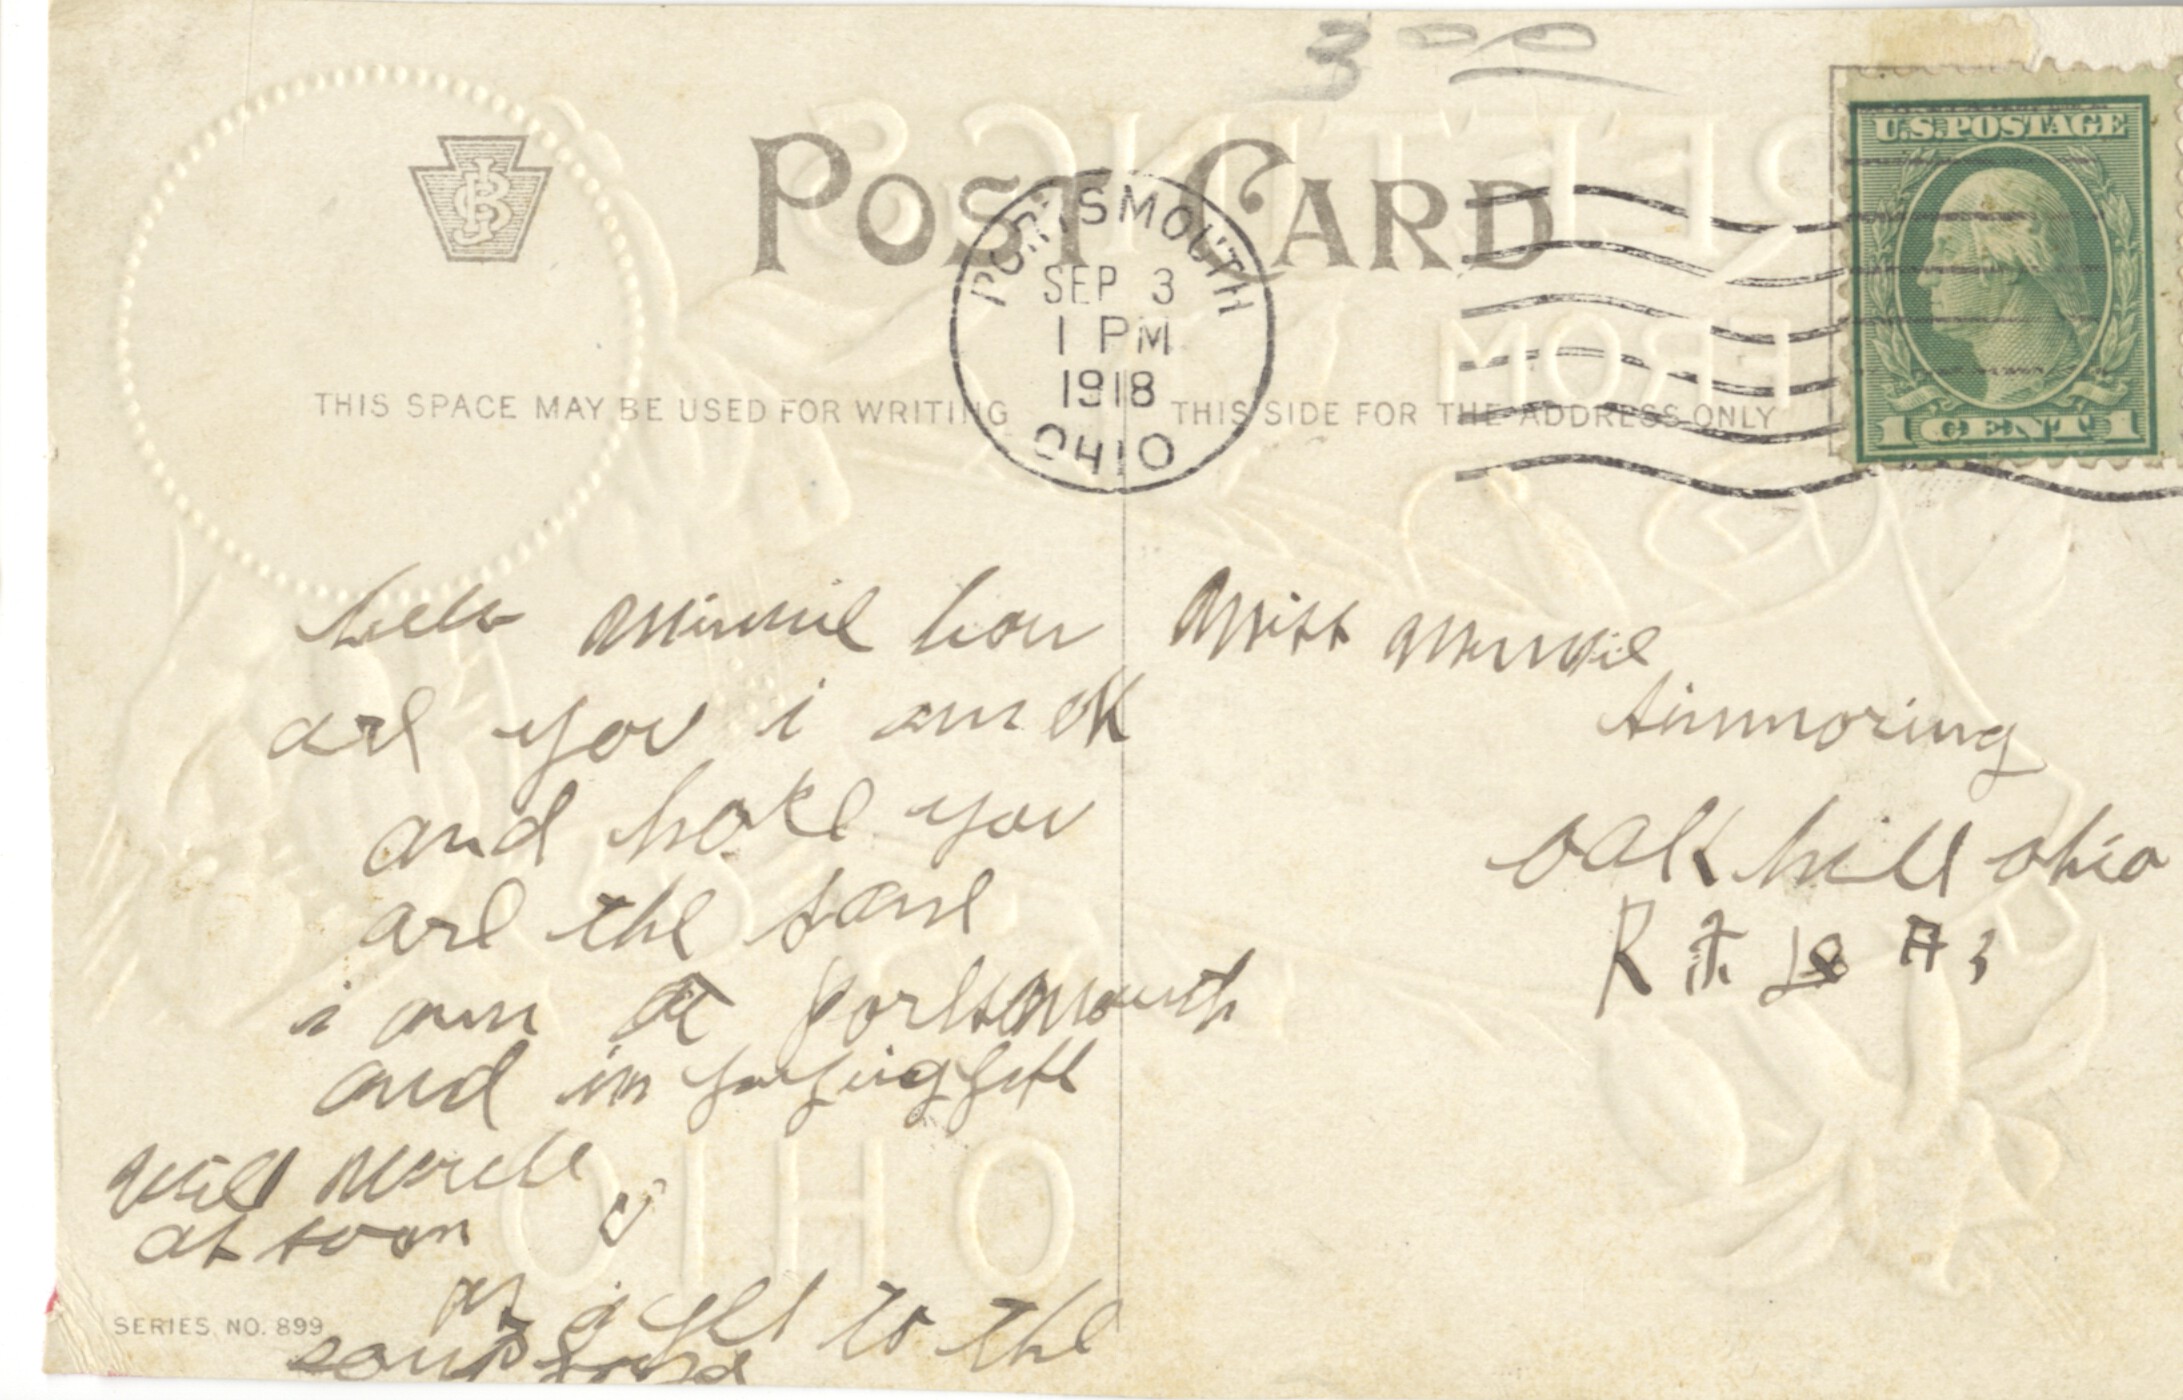 3 00
POST CARD
U.S. POSTAGE
1 CENT 1
PORTSMOUTH
SEP 3
1 PM
1918
OHIO
THIS SPACE MAY BE USED FOR WRITING
THIS SIDE FOR THE ADDRESS ONLY
GREETINGS
FROM
OHIO
hello Minnie how
are you i am ok
and hope you
are the same
i am at Portsmouth
and in
will
as soon
as i get to the
Miss Minnie
oak hill ohio
R
SERIES NO. 899